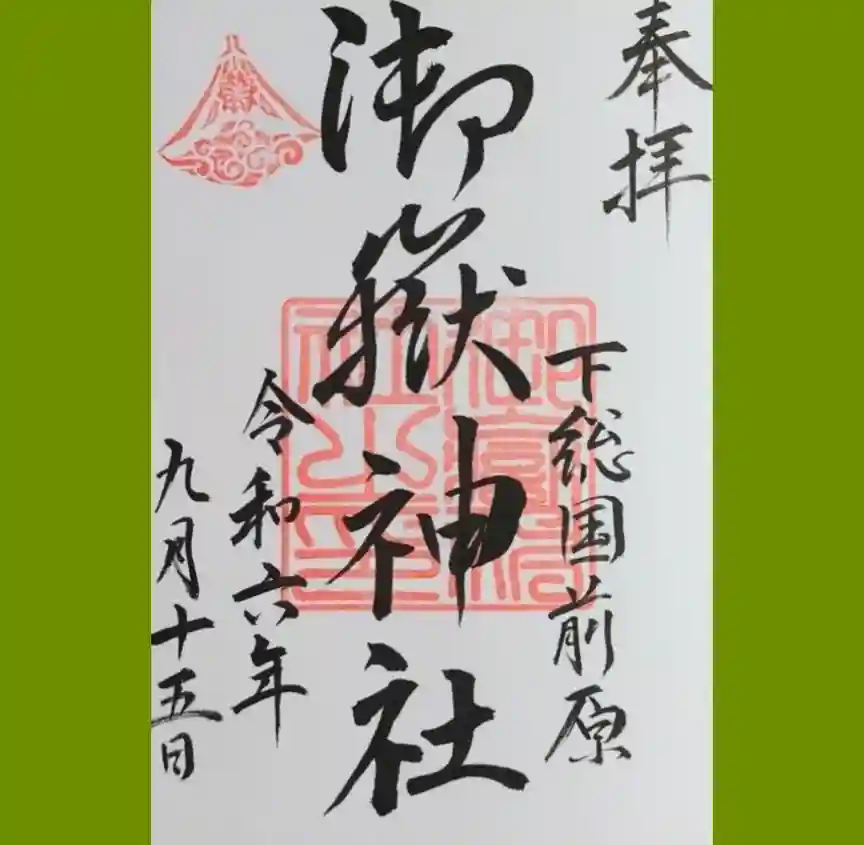 奉拝
下総国前原
御嶽神社
令和六年
九月十五日